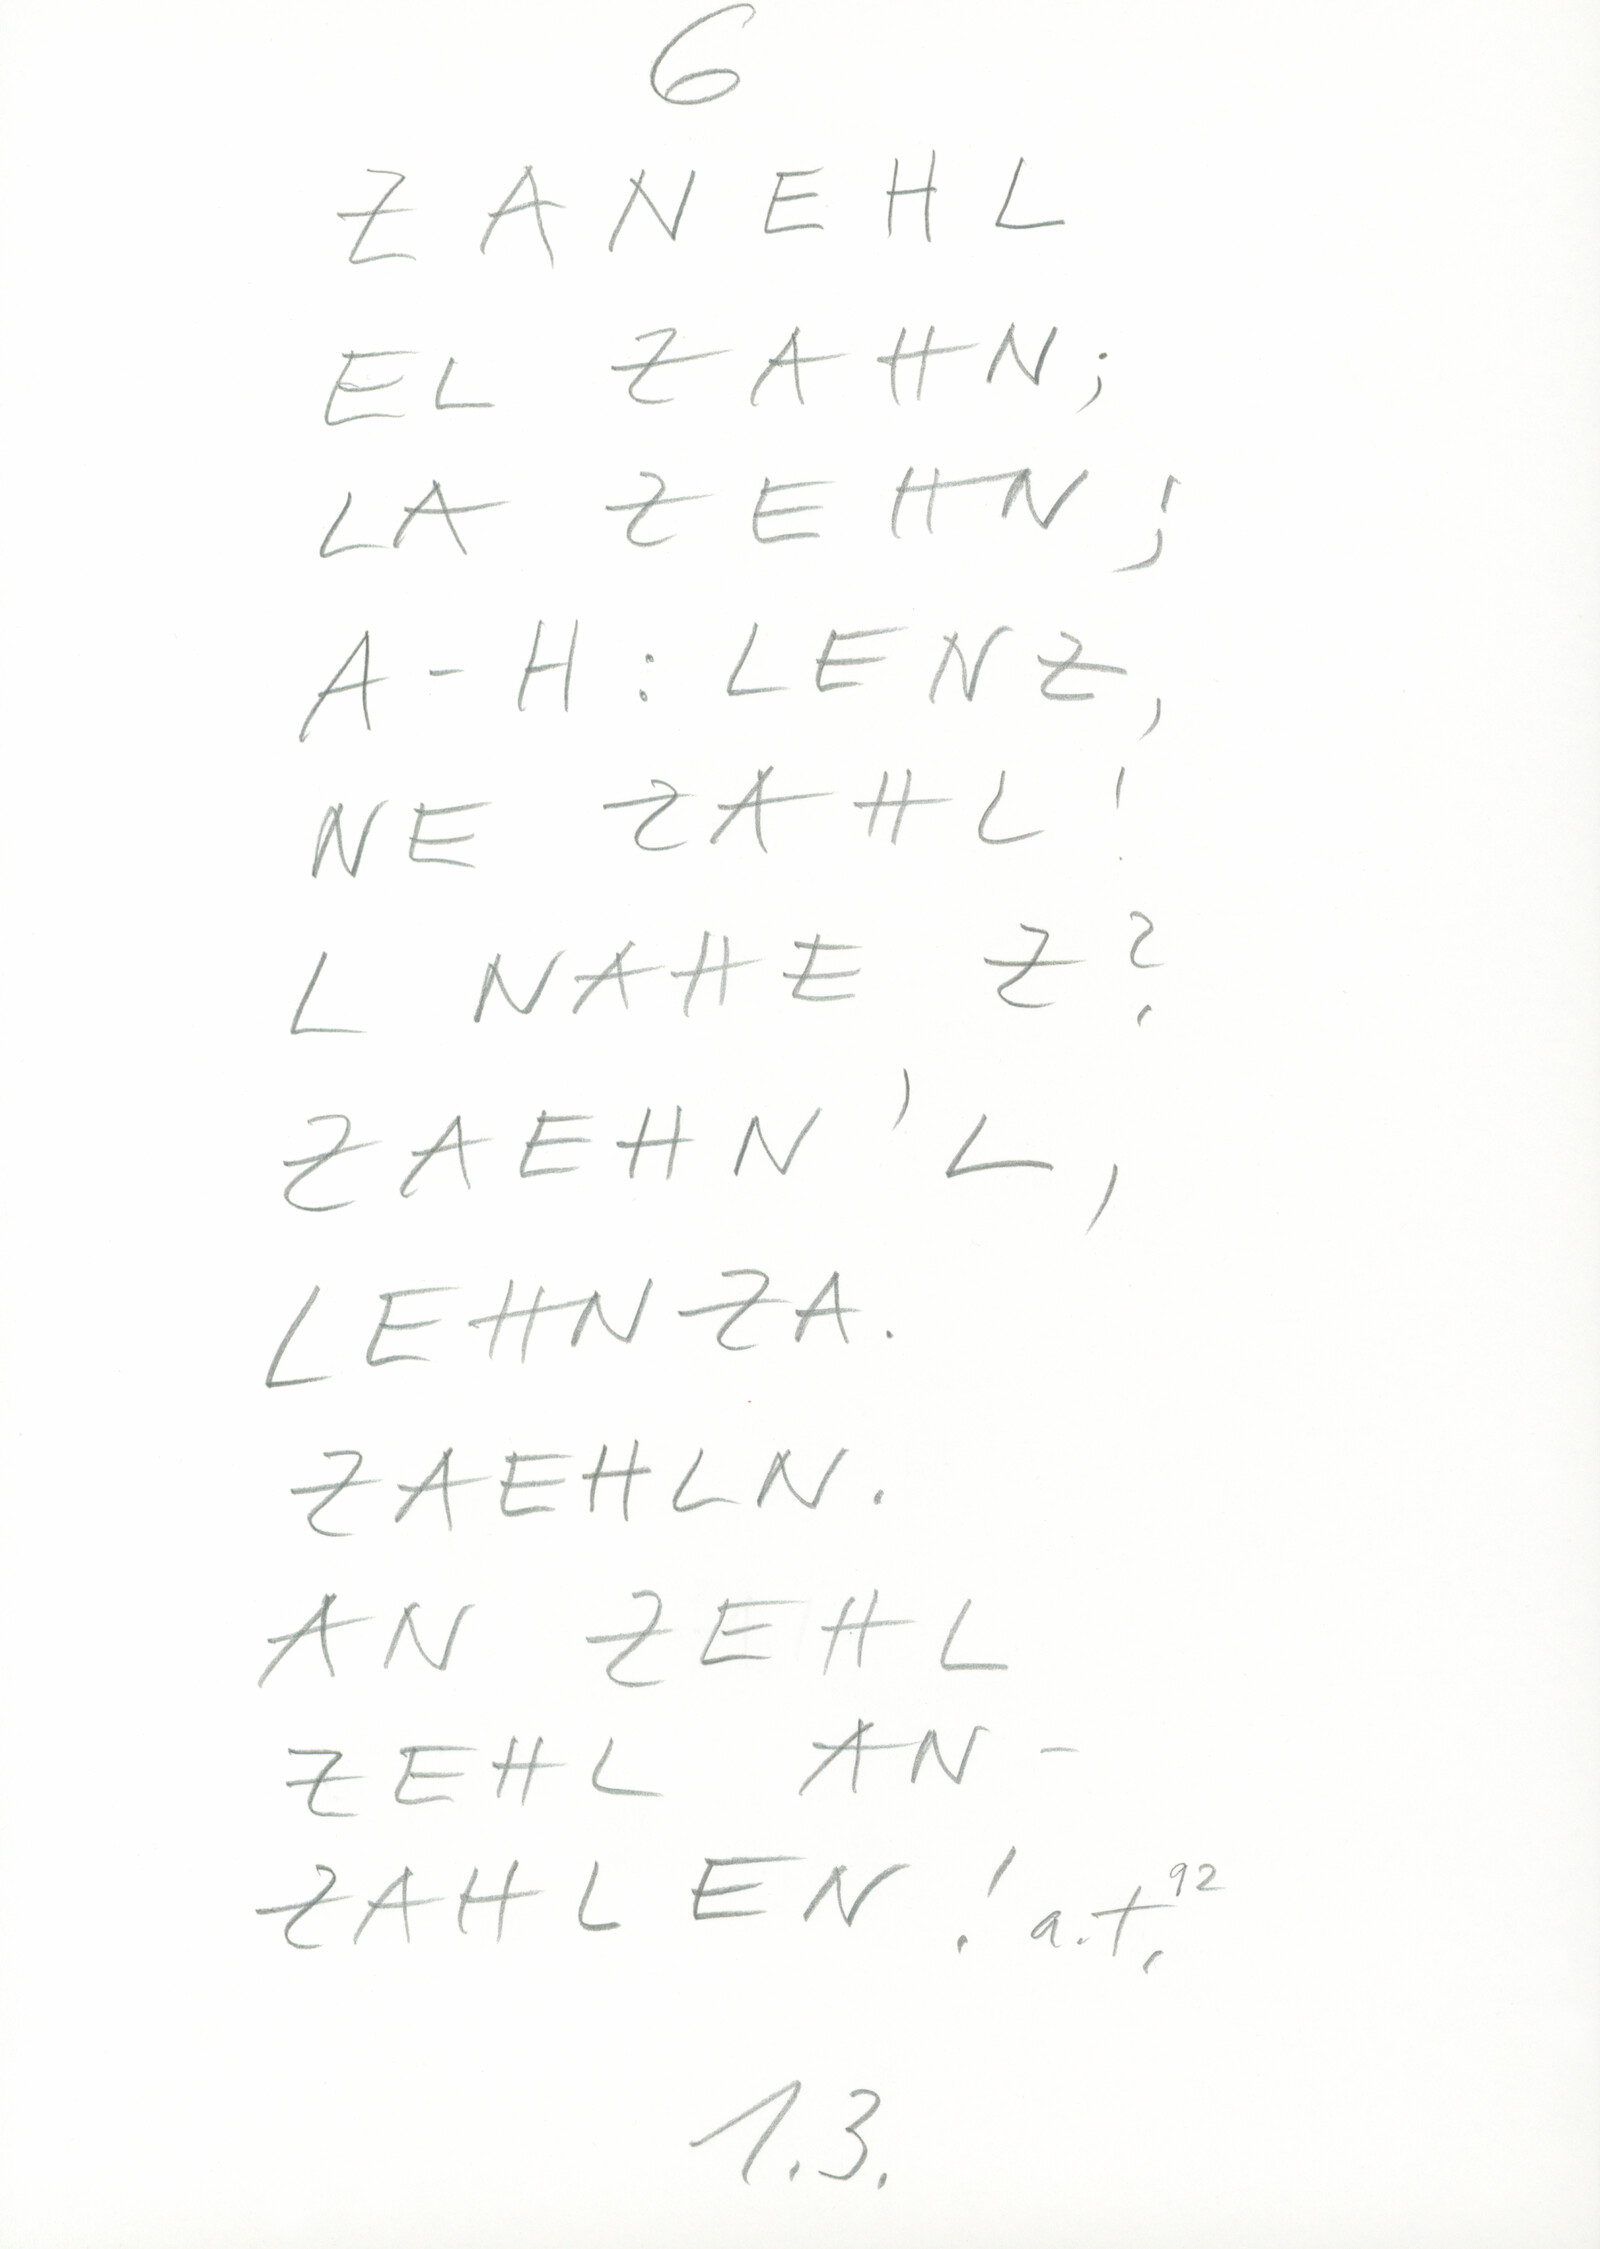 6
ZANEHL
EL ZAHN;
LA ZEHN;
A-H: LENZ,
NE ZAHL!
L NAHE Z?
ZAEHN'L,
LEHNZA.
ZAEHLN.
AN ZEHL
ZEHL AN-
ZAHLEN! a.t. 92
1.3.